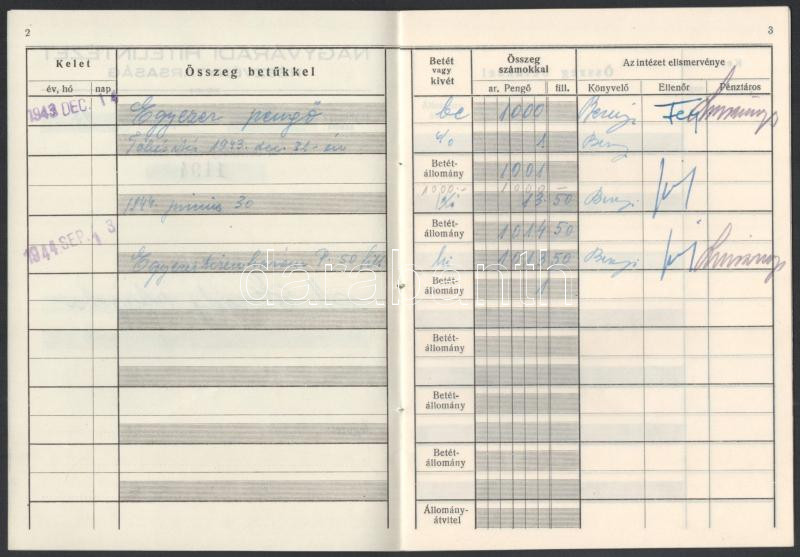 2
3
Kelet
év, hó
nap
Összeg betűkkel
Betét vagy kivét
Összeg számokkal
ar. Pengő
fill.
Az intézet elismervénye
Könyvelő
Ellenőr
Pénztáros
1943 DEC. 14
Egyezer pengő
be
1000
Tőkésítés 1943. dec. 31-én
1
Betét-állomány
1001
1000-
1000-
1944. junius 30
13 50
Betét-állomány
1014 50
1944 SEP. 13
P. 50 fill
ki
1013 50
Betét-állomány
1
Betét-állomány
Betét-állomány
Betét-állomány
Állomány-átvitel
NAGYVÁRADI HITELINTÉZET
1194
darabanth